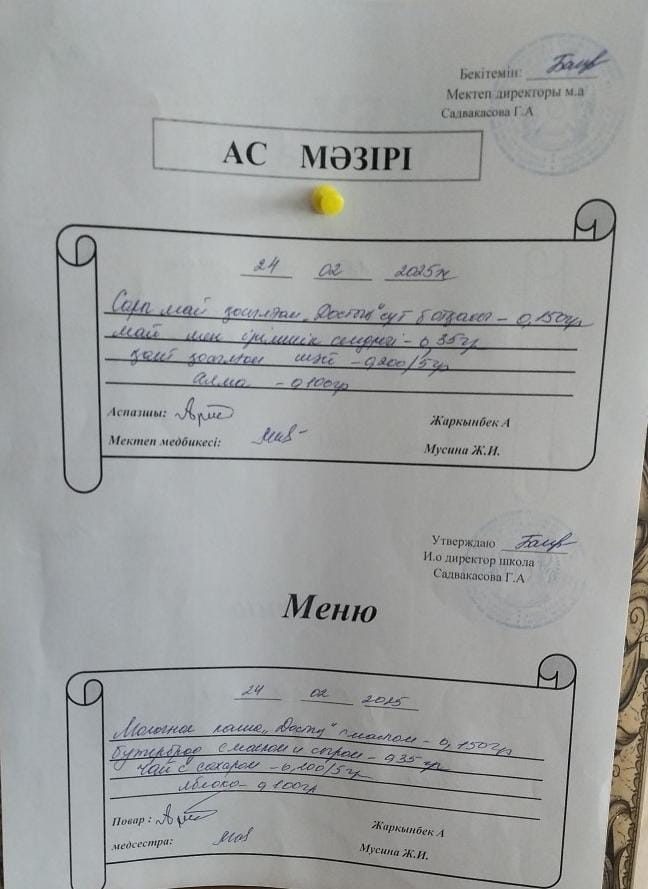 Бекітемін:
Мектеп директоры м.а
Садвакасова Г.А
АС МӘЗІРІ
24 02 2025ж
Сары май қосылған „Достық" сүт ботқасы - 0,150гр
май мен ірімшік сендвичі - 0,35гр
қант қосылған шәй - 0,200/5гр
алма - 0,100гр
Аспазшы: Жаркынбек А
Мектеп медбикесі: Мусина Ж.И.
Утверждаю
И.о директор школа
Садвакасова Г.А
Меню
24 02 2025
Молочная каша „Достық" с маслом - 0,150гр
Бутерброд с маслом и сыром - 0,35 гр
Чай с сахаром - 0,200/5гр
яблоко - 0,100гр
Повар : Жаркынбек А
медсестра: Мусина Ж.И.